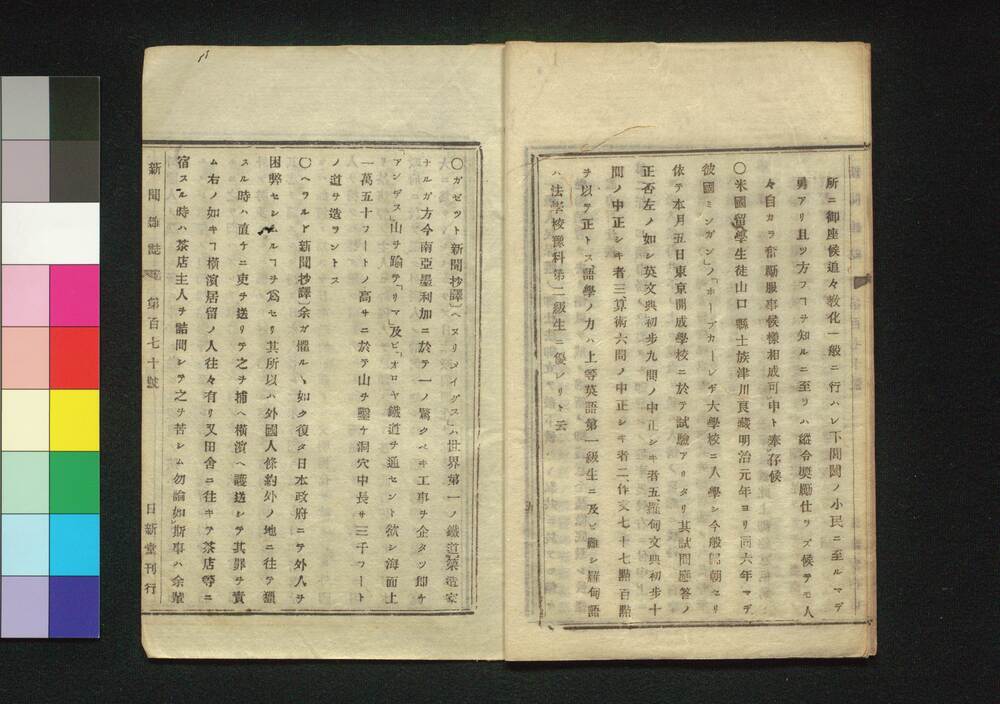 所ニ御座候追々教化一般ニ行ハレ下閭閻ノ小民ニ至ルマデ
勇アリ且ツ方フヿヲ知ルニ至リハ縱令奬勵仕ラズ候テモ人
々自カラ奮勵服事候樣相成可申ト奉存候
〇米國留學生徒山口縣士族津川良藏明治元年ヨリ同六年マデ
彼國ミシガン」ノ「ホープカーレヂ大學校ニ入學シ今般歸朝セリ
依テ本月五日東京開成學校ニ於テ試驗アリタリ其試問應答ノ
正否左ノ如シ英文典初步九問ノ中正シキ者五羅甸文典初步十
問ノ中正シキ者三算術六問ノ中正シキ者二作文七十七點百點
ヲ以テ正トス語學ノ力ハ上等英語第一級生ニ及ビ難シ羅甸語
ハ法學校豫科第二級生ニ優レリト云
〇ガゼット新聞抄譯〕ヘヌリメイグス」ハ世界第一ノ鐵道築造家
ナルガ方今南亞墨利加ニ於テ一ノ驚クベキ工事ヲ企タツ即ケ
「アンデス」山ヲ踰テ「リマ」及ビ「オロヤ鐵道ヲ通セント欲シ海面上
一萬五十フートノ高サニ於テ山ヲ鑿ケ洞穴中長サ三千フート
ノ道ヲ造ラントス
〇ヘラルド新聞抄譯〕余ガ懼ルヽ如ク復タ日本政府ニテ外人ヲ
困弊セシムルヿヲ爲セリ其所以ハ外國人條約外ノ地ニ往テ獵
スル時ハ直ケニ吏ヲ送リテ之ヲ捕ヘ橫濱ヘ護送シテ其罪ヲ責
ム右ノ如キヿ橫濱居留ノ人往々有リ又田舍ニ往キテ茶店等ニ
宿スル時ハ茶店主人ヲ詰問シテ之ヲ苦シム勿論如斯事ハ余輩
新聞雜誌 第百七十號 日新堂刊行